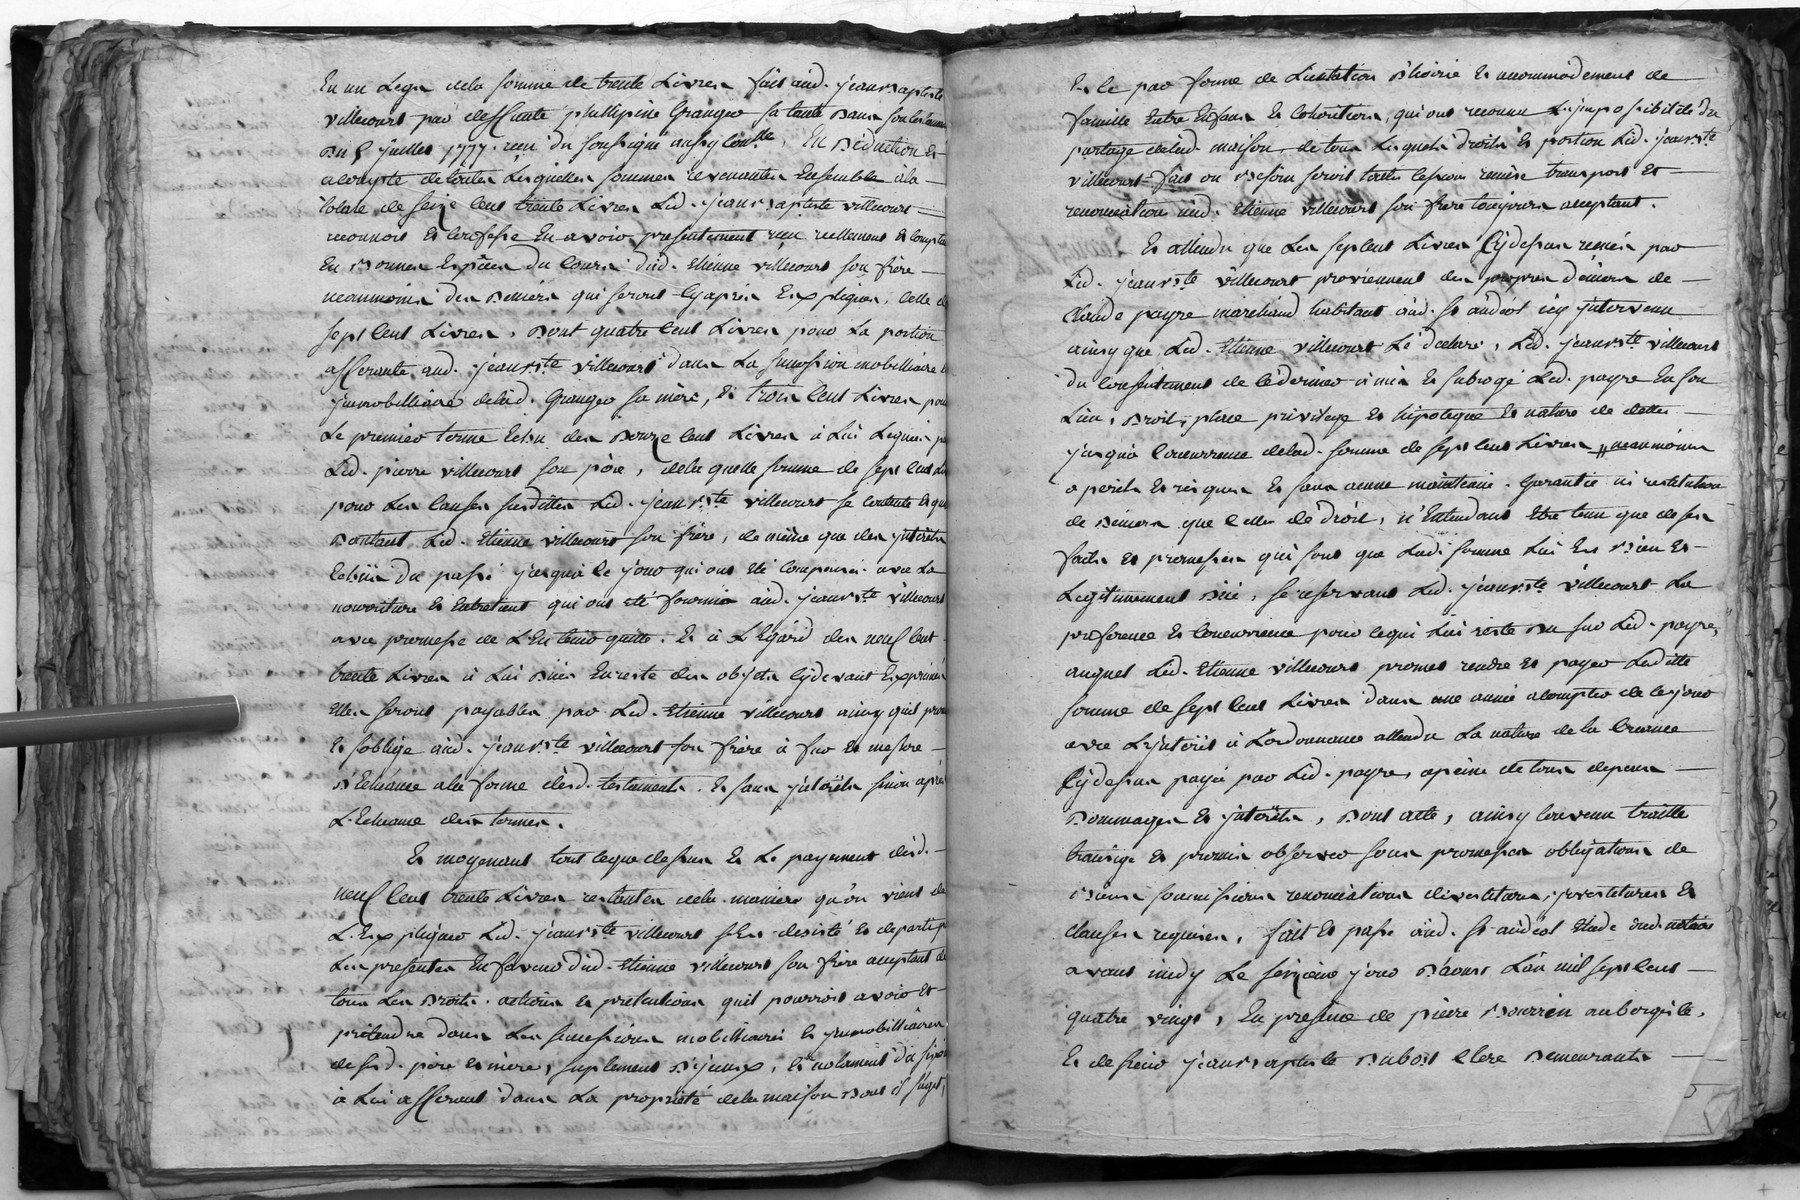 En un Legs de la somme de trente Livres fait aud. jean Baptiste
villecourt par deffunte phillipine Granger sa tante Dans son testament
Du 5 juillet 1777 reçu du soussigné aussy Contrôllé, En Déduction Et
acompte de toutes Lesquelles sommes revenantes Ensemble à la
totale de seize Cent trente Livres Led. jean Baptiste villecourt
reconnoit Et Confesse En avoir présentement reçu réellement Et Comptant
En Bonnes Espèces du Cours dud. Etienne villecourt son frère
neanmoins des Deniers qui seront Cyaprès Expliqués, Celle de
sept Cent Livres, Dont quatre Cent Livres pour La portion
afferante aud. jean Bte villecourt dans La succession mobilliaire Et
jmmobilliaire de lad. Granger sa mère, Et trois Cent Livres pour
Le premier terme Echu des Douze Cent Livres à Lui Légués par
Led. pierre villecourt son père, de laquelle somme de sept Cent Livres
pour Les Causes susdittes Led. jean Bte villecourt se Contente Et quitte
Dautant Led. Etienne villecourt son frère, de même que des jnterêts
Echüs du passé jusqu'à Ce jour qui ont été Compensés avec La
nourriture Et Entretient qui ont été fournis aud. jean Bte villecourt
avec promesse de L'En tenir quitte. Et à L'Egard des neuf Cent
trente Livres à Lui Dües En reste des objets Cydevant Exprimés
Elles seront payables par Led. Etienne villecourt ainsy quil promet
Et soblige aud. jean Bte villecourt son frère à fur Et mesure
D'Echéance à la forme desd. testaments Et sans jnterêts sinon après
L'Echéance des termes.
Et moyenant tout Ce que dessus Et Le payement desd.
neuf Cent trente Livres restantes de la manière qu'on vient de
L'Expliquer Led. jean Bte villecourt s'Est desisté Et departi par
Les presentes En faveur dud. Etienne villecourt son frère acceptant de
tous Les Droits, actions Et prétentions quil pourroit avoir Et
prétendre dans Les successions mobilliaires Et jmmobilliaires
desd. père Et mère, suplement D'jceux, Et notamment du sixième
à Lui afferant dans La propriété de la maison Dont il s'agit,
Et Ce par forme de Licitation D'hoirie Et accommodement de
famille Entre Enfans Et Cohéritiers, qui ont reconnu L'jmpossibilité du
partage de lad. maison, de tous Lesquels droits Et portion Led. jean Bte
villecourt fait ou Besoin seroit toute Cession remise transport Et
renonciation aud. Etienne villecourt son frère toujours acceptant.
Et attendu que Les sept Cent Livres Cydessus remis par
Led. jean Bte villecourt proviennent des propres deniers de
Claude payre marchand habitant aud. St andéol icy jntervenu
ainsy que Led. Etienne villecourt Le déclare, Led. jean Bte villecourt
du Consentement de Ce dernier a mis Et subrogé Led. payre En son
Lieu, Droit, place privilege Et hipoteque Et nature de dette
jusqu'à Concurrence de lad. somme de sept Cent Livres neanmoins
a perils Et risques Et sans aucune maintenue, garantie ni restitution
de Deniers que Celle de droit, n'Entendant Etre tenu que de ses
faits Et promesses qui sont que Ladi somme Lui Est Bien Et
Legitimement Düe, se reservant Led. jean Bte villecourt La
preference Et Concurrence pour Cequi Lui reste Du sur Led. payre,
auquel Led. Etienne villecourt promet rendre Et payer Laditte
somme de sept Cent Livres dans une année acompter de Ce jour
avec L'jnterêt à Lordonnance attendu La nature de la Créance
Cydessus payée par Led. payre, apeine de tous depens
Dommages Et jnterêts, Dont acte, ainsy Convenu traitté
transigé Et promis observer sous promesses obligations de
Biens soumissions renonciations devestitions, jnvestitures Et
Clauses requises, fait Et passé aud. St andéol Etude dud. notaire
avant midy Le seizieme jour D'aoust L'an mil sept Cent
quatre vingt, En presence de pierre Bourrin aubergiste,
Et de sieur jean Baptiste Dubost Clerc Demeurants